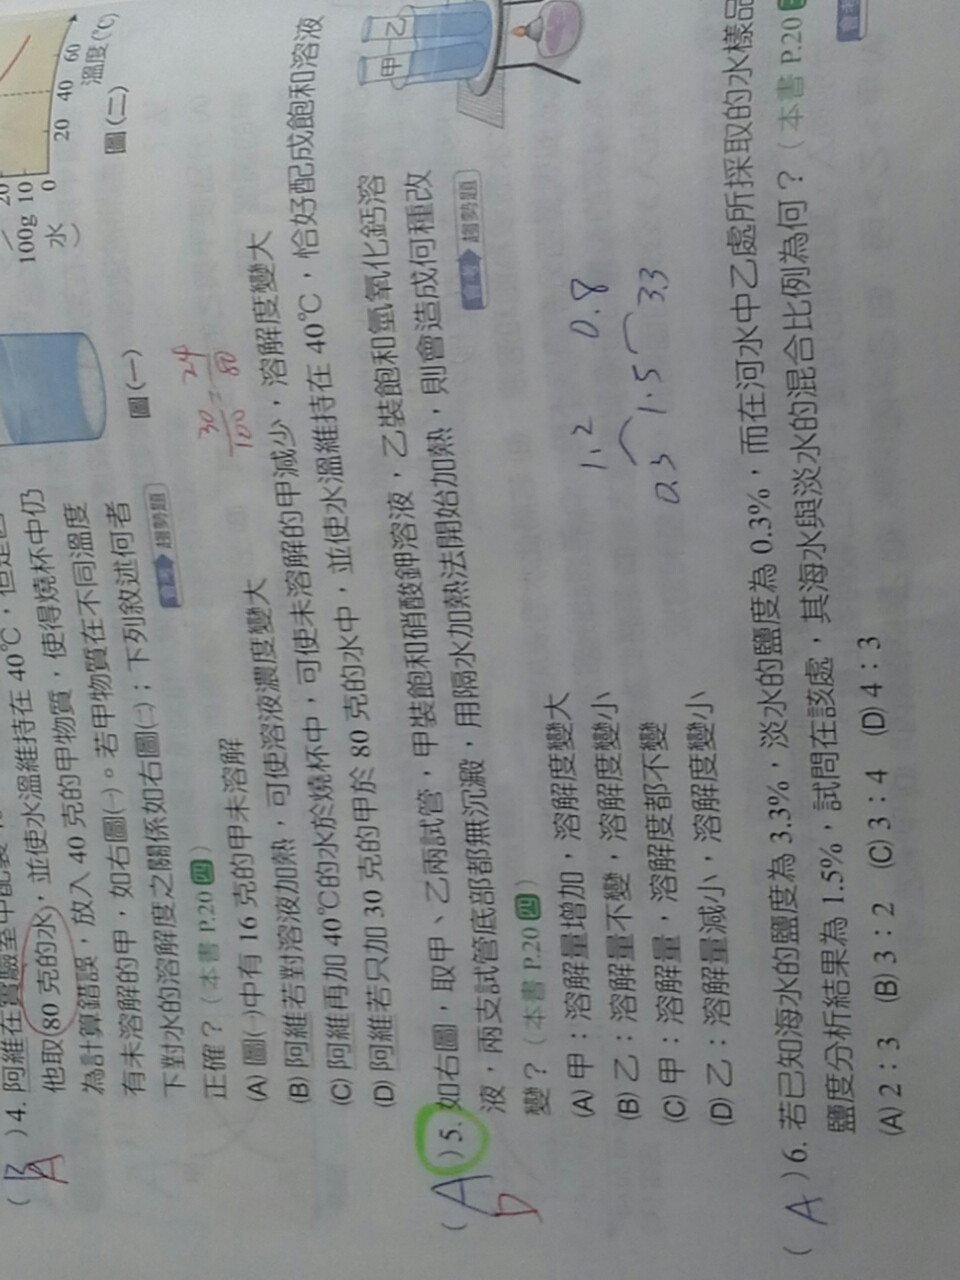 100g 10
水
0 20 40 60 溫度(℃)
圖(一)
圖(二)
( ) 4. 阿維在實驗室中配製
他取 80 克的水,並使水溫維持在 40℃,但是
為計算錯誤,放入 40 克的甲物質,使得燒杯中仍
有未溶解的甲,如右圖(一)。若甲物質在不同溫度
下對水的溶解度之關係如右圖(二);下列敘述何者
正確?(本書 P.20 四) 會考 趨勢題
30/100 = 24/80
(A) 圖(一)中有 16 克的甲未溶解
(B) 阿維若對溶液加熱,可使溶液濃度變大
(C) 阿維再加 40℃的水於燒杯中,可使未溶解的甲減少,溶解度變大
(D) 阿維若只加 30 克的甲於 80 克的水中,並使水溫維持在 40℃,恰好配成飽和溶液
A
( A ) 5. 如右圖,取甲、乙兩試管,甲裝飽和硝酸鉀溶液,乙裝飽和氫氧化鈣溶
液,兩支試管底部都無沉澱,用隔水加熱法開始加熱,則會造成何種改
變?(本書 P.20 四) 會考 趨勢題
D
甲 乙
(A) 甲:溶解量增加,溶解度變大
(B) 乙:溶解量不變,溶解度變小
(C) 甲:溶解量,溶解度都不變
(D) 乙:溶解量減小,溶解度變小
1.2 0.8
0.3 1.5 3.3
( A ) 6. 若已知海水的鹽度為 3.3%,淡水的鹽度為 0.3%,而在河水中乙處所採取的水樣品
鹽度分析結果為 1.5%,試問在該處,其海水與淡水的混合比例為何?(本書 P.20
(A) 2:3 (B) 3:2 (C) 3:4 (D) 4:3
會考